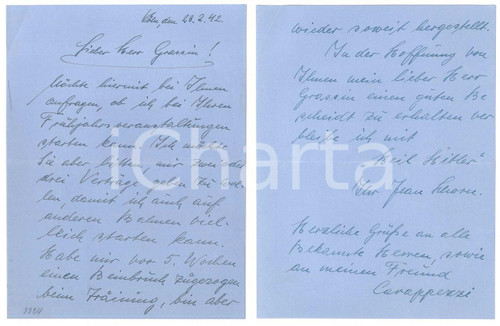 Köln, den 23.2.42
Lieber Herr Grassin!
Möchte hiermit bei Ihnen
anfragen, ob ich bei Ihren
Frühjahrsveranstaltungen
starten kann. Ich möchte
Sie aber bitten mir zwei oder
drei Verträge geben zu wol-
len, damit ich auch auf
anderen Bahnen viel-
leich starten kann.
Habe mir vor 5. Wochen
einen Beinbruch zugezogen
beim Träining, bin aber
wieder soweit hergestellt.
In der Hoffnung von
Ihnen mein lieber Herr
Grassin einen guten Be
scheidt zu erhalten ver
bleibe ich mit
"Heil Hitler"
Ihr Jean Schorn.
Herzliche Grüße an alle
Bekannte Herren, sowie
an meinen Freund
Carappezzi
iCharta